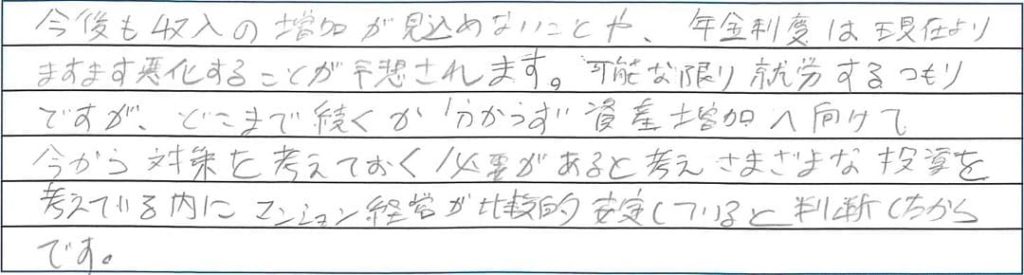 今後も収入の増加が見込めないことや、年金制度は現在より
ますます悪化することが予想されます。可能な限り就労するつもり
ですが、どこまで続くか分からず資産増加へ向けて
今から対策を考えておく必要があると考えさまざまな投資を
考えている内にマンション経営が比較的安定していると判断したから
です。